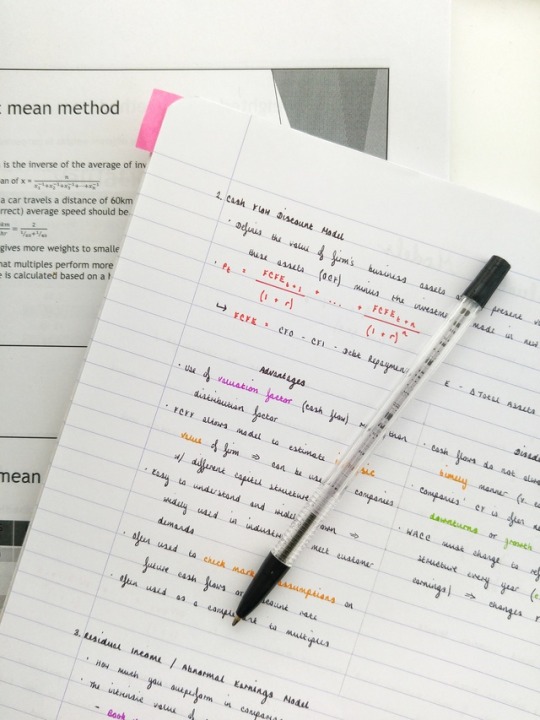 mean method
is the inverse of the average of inv
an of x = n / x₁⁻¹+x₂⁻¹+x₃⁻¹+⋯+xₙ⁻¹
a car travels a distance of 60km
rrect) average speed should be
gives more weights to smalle
hat multiples perform more
e is calculated based on a h
mean
2. Cash Flow Discount Model
· Defines the value of firm's business assets as present v
these assets (OCF) minus the investm made in net
· Pt = FCFEt+1 / (1+r) + ... + FCFEt+n / (1+r)ⁿ
↳ FCFE = CFO - CFI - Debt Repaymen
E - Δ Total Assets
Advantages
· use of valuation factor (cash flow) than
distribution factor
· FCFF allows model to estimate
value of firm ⇒ can be use
w/ different capital structure companies
· Easy to understand and widel own ⇒
widely used in industr meet customer
demands
· Often used to check mark assumptions on
future cash flows or discount rate
· Often used as a complement to multiples
Disad
· cash flows do not alw
timely manner
· Companies' CF is often ne
downturns or growth
· WACC must change to ref
structure every year
earnings) ⇒ changes
3. Residual Income / Abnormal Earnings Model
· How much you outperform in compariso
· The intrinsic value of
- book